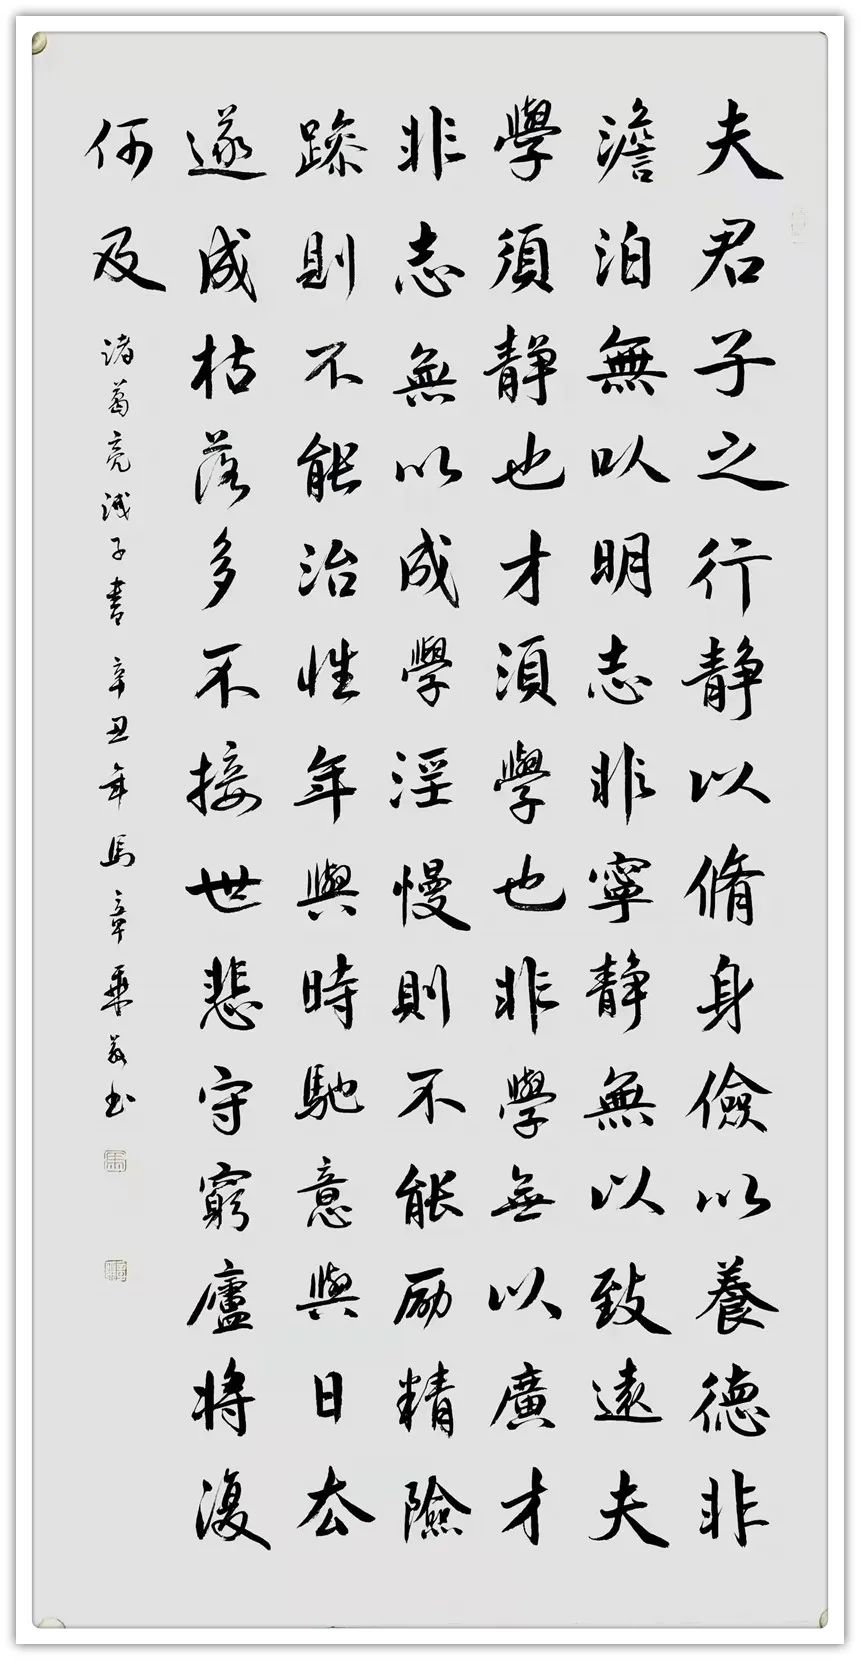 夫君子之行静以脩身儉以養德非
澹泊無以明志非寧静無以致遠夫
學須静也才須學也非學無以廣才
非志無以成學淫慢則不能励精險
躁則不能治性年與時馳意與日去
遂成枯落多不接世悲守窮廬將復
何及
诸葛亮诫子書辛丑年馬章乘敬书